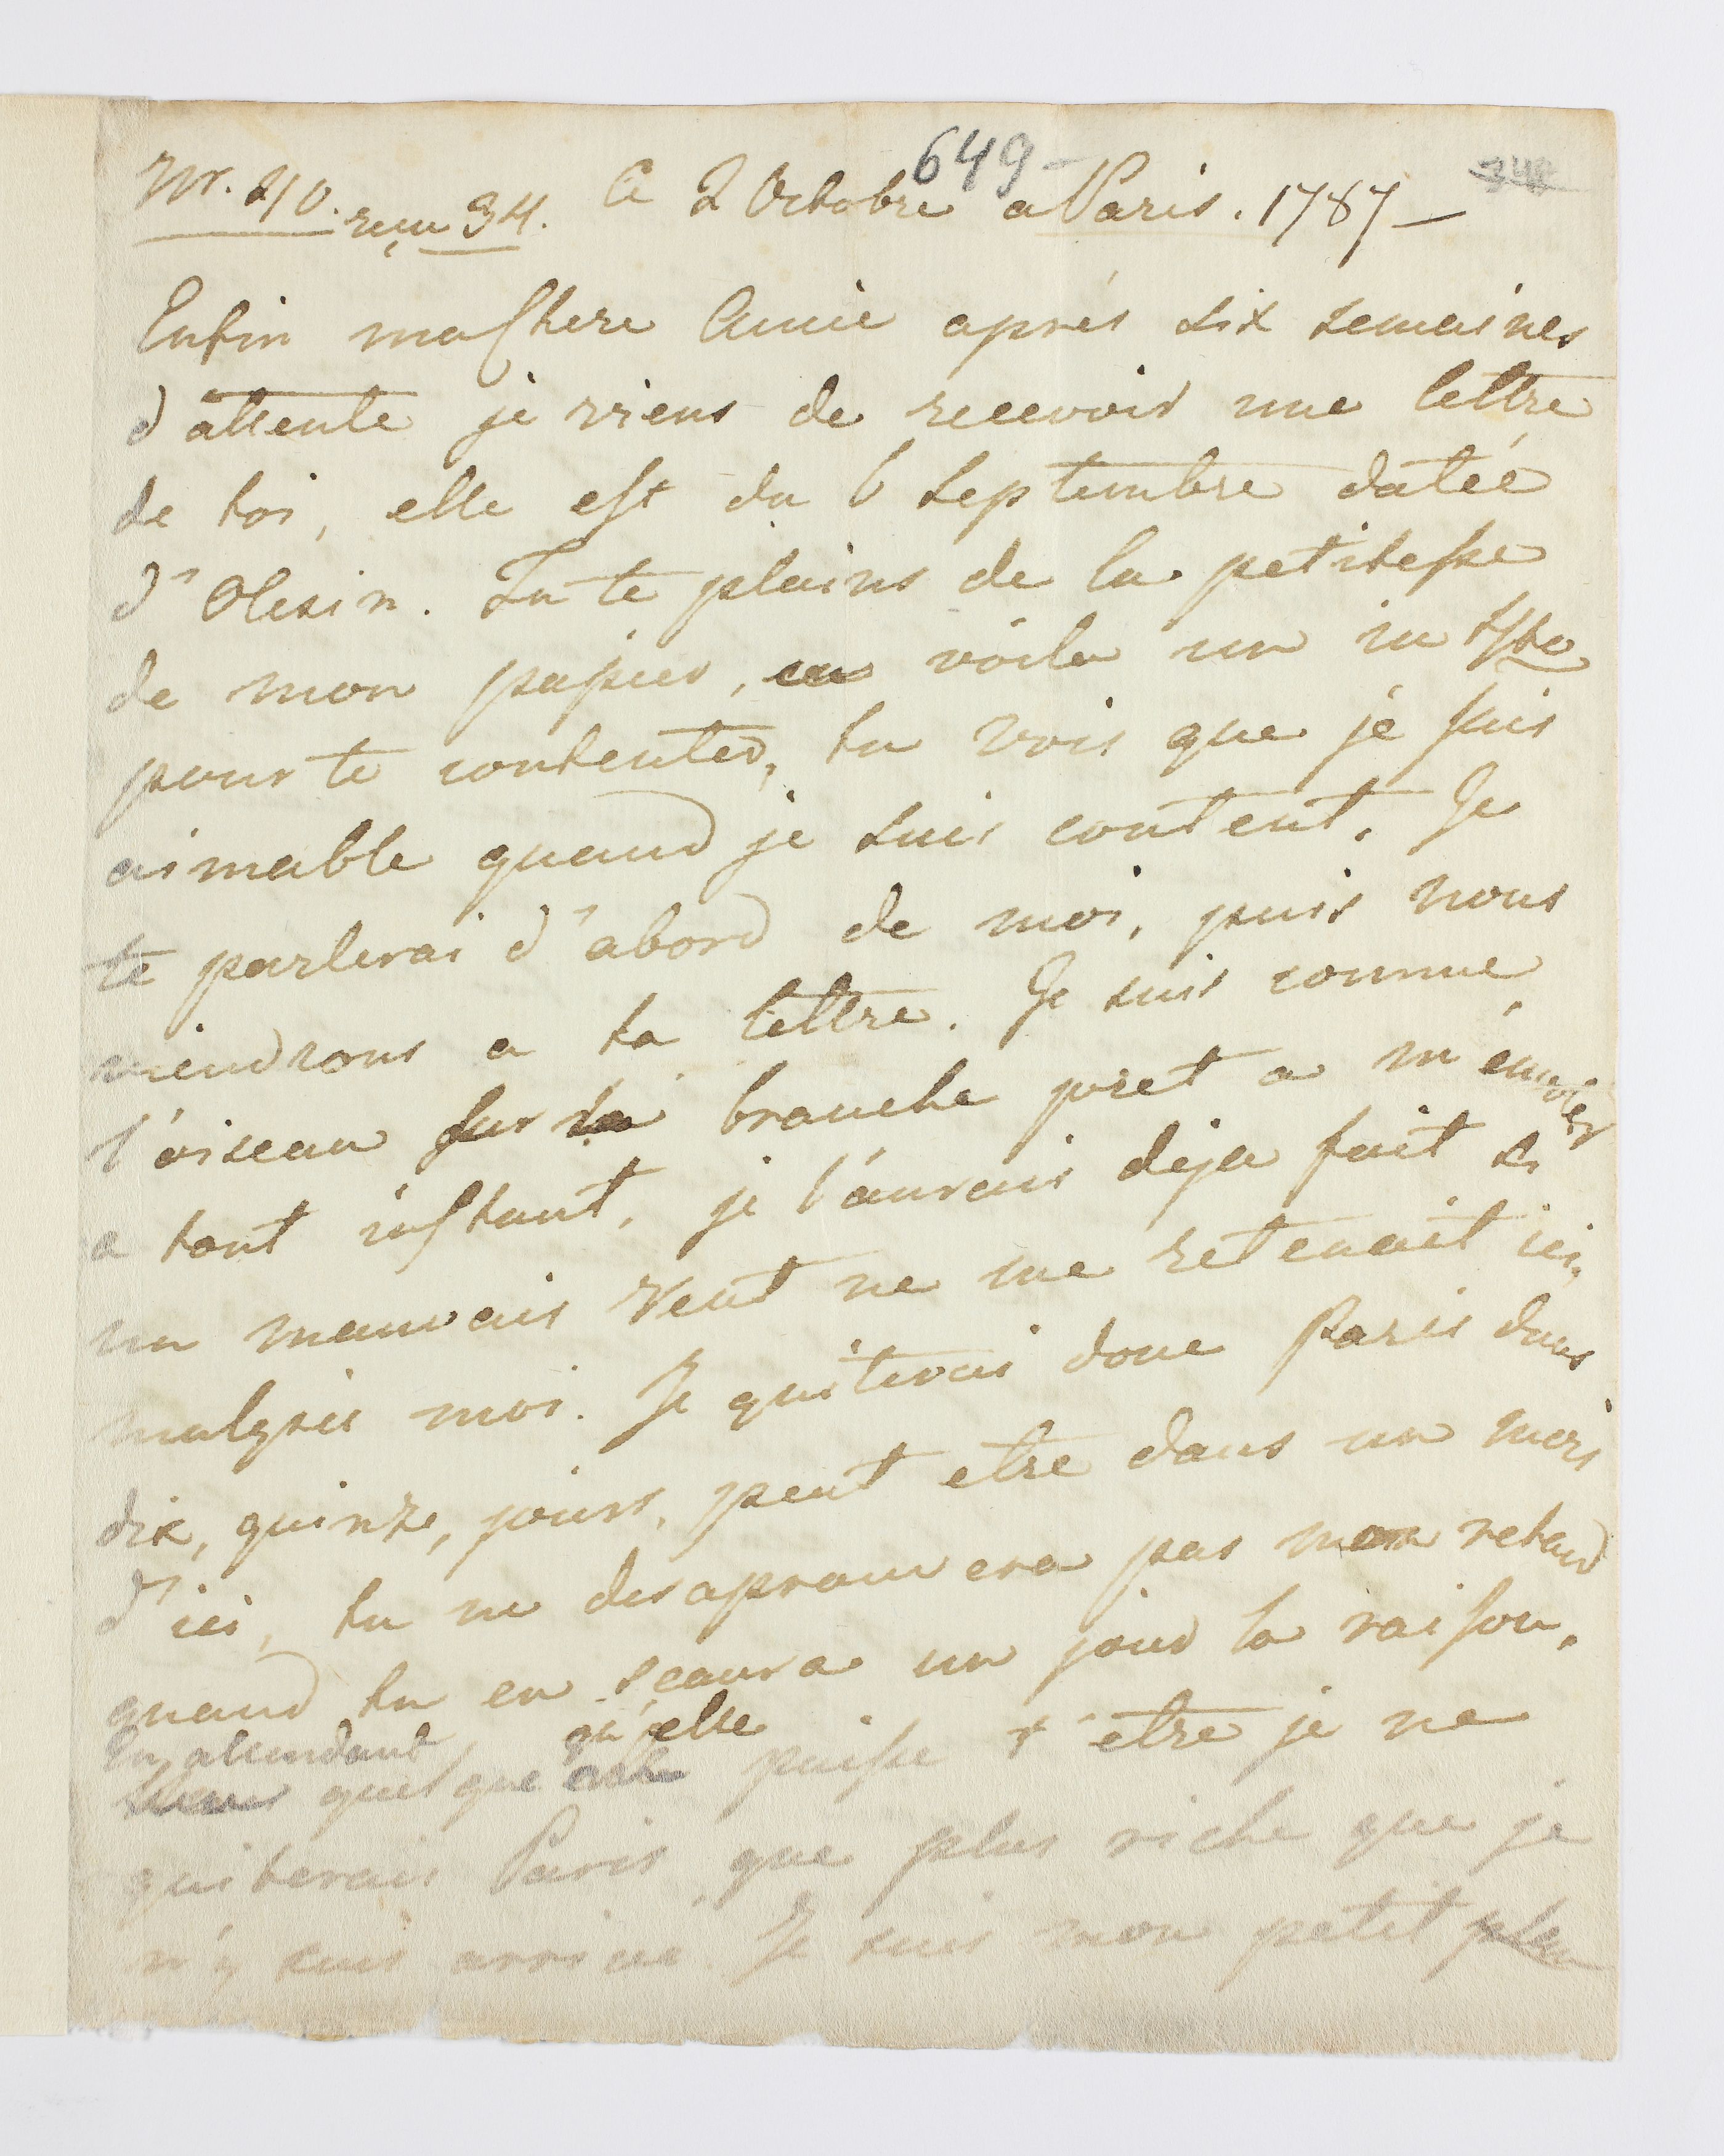 649
348
Nr. 40. reçu 34. Ce 2 Octobre a Paris. 1787 —
Enfin ma Chere Amie aprés six semaines
d'attente je viens de recevoir une lettre
de toi, elle est du 6 Septembre datée
d'Olesin. Tu te plains de la petitesse
de mon papier, en voila un in 4to
pour te contenter, tu vois que je suis
aimable quand je suis content. Je
te parlerai d'abord de moi, puis nous
viendrons a ta lettre. Je suis comme
l'oiseau sur la branche pret a m'envoler
a tout instant, je l'aurais deja fait si
un mauvais vent ne me retenait ici,
malgrés moi. Je quiterai donc Paris dans
dix, quinze, jours, peut etre dans un mois
d'ici, tu ne desaprouvera pas mon retard
quand tu en sçaura un jour la raison.
En attendant qu'elle
quelque puisse etre je ne
quiterais Paris que plus riche que je
n'y suis arrivé. Je suis mon petit plan